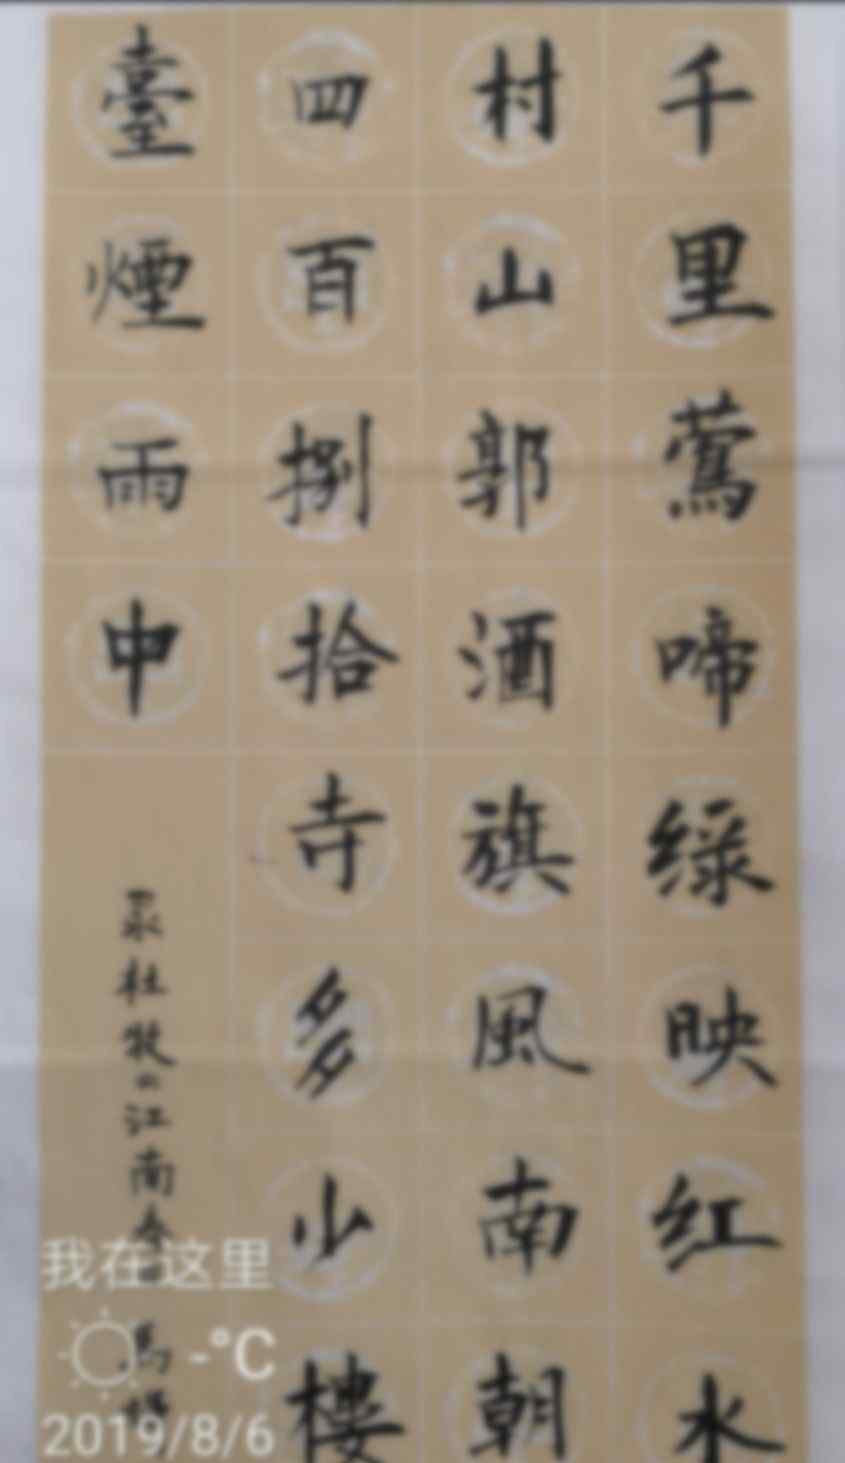 千里莺啼綠映红水
村山郭酒旗風南朝
四百捌拾寺多少樓
臺煙雨中
录杜牧江南春
馮
我在这里
-°C
2019/8/6